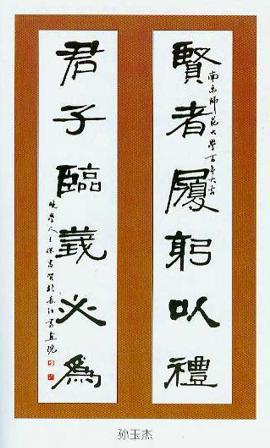 賢者履躬以禮
南京師范大學百年大吉
君子臨義必為
孙玉杰